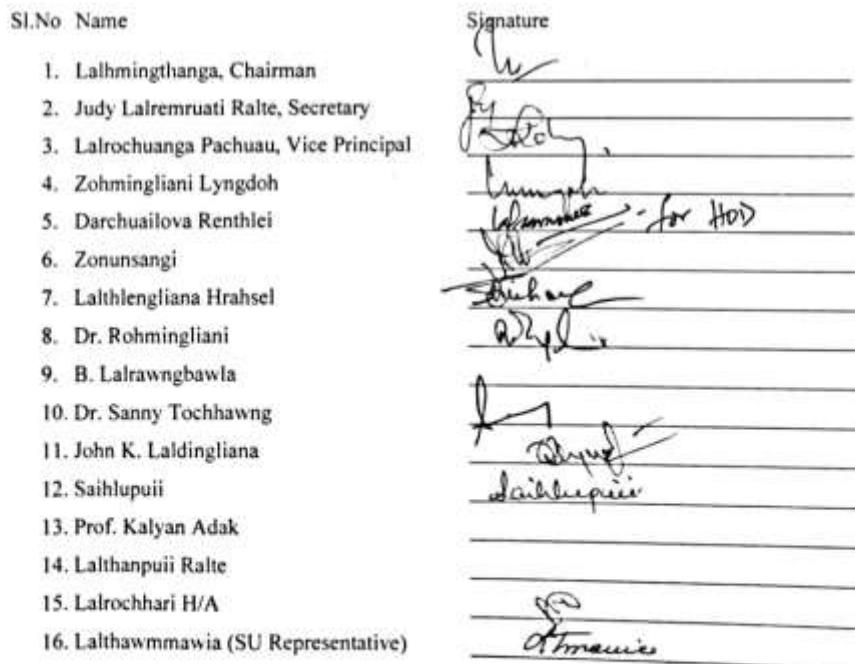 Sl.No Name Signature
1. Lalhmingthanga, Chairman
2. Judy Lalremruati Ralte, Secretary
3. Lalrochuanga Pachuau, Vice Principal
4. Zohmingliani Lyngdoh
5. Darchuailova Renthlei - for HOD
6. Zonunsangi
7. Lalthlengliana Hrahsel
8. Dr. Rohmingliani
9. B. Lalrawngbawla
10. Dr. Sanny Tochhawng
11. John K. Laldingliana
12. Saihlupuii Saihlupuii
13. Prof. Kalyan Adak
14. Lalthanpuii Ralte
15. Lalrochhari H/A
16. Lalthawmmawia (SU Representative)